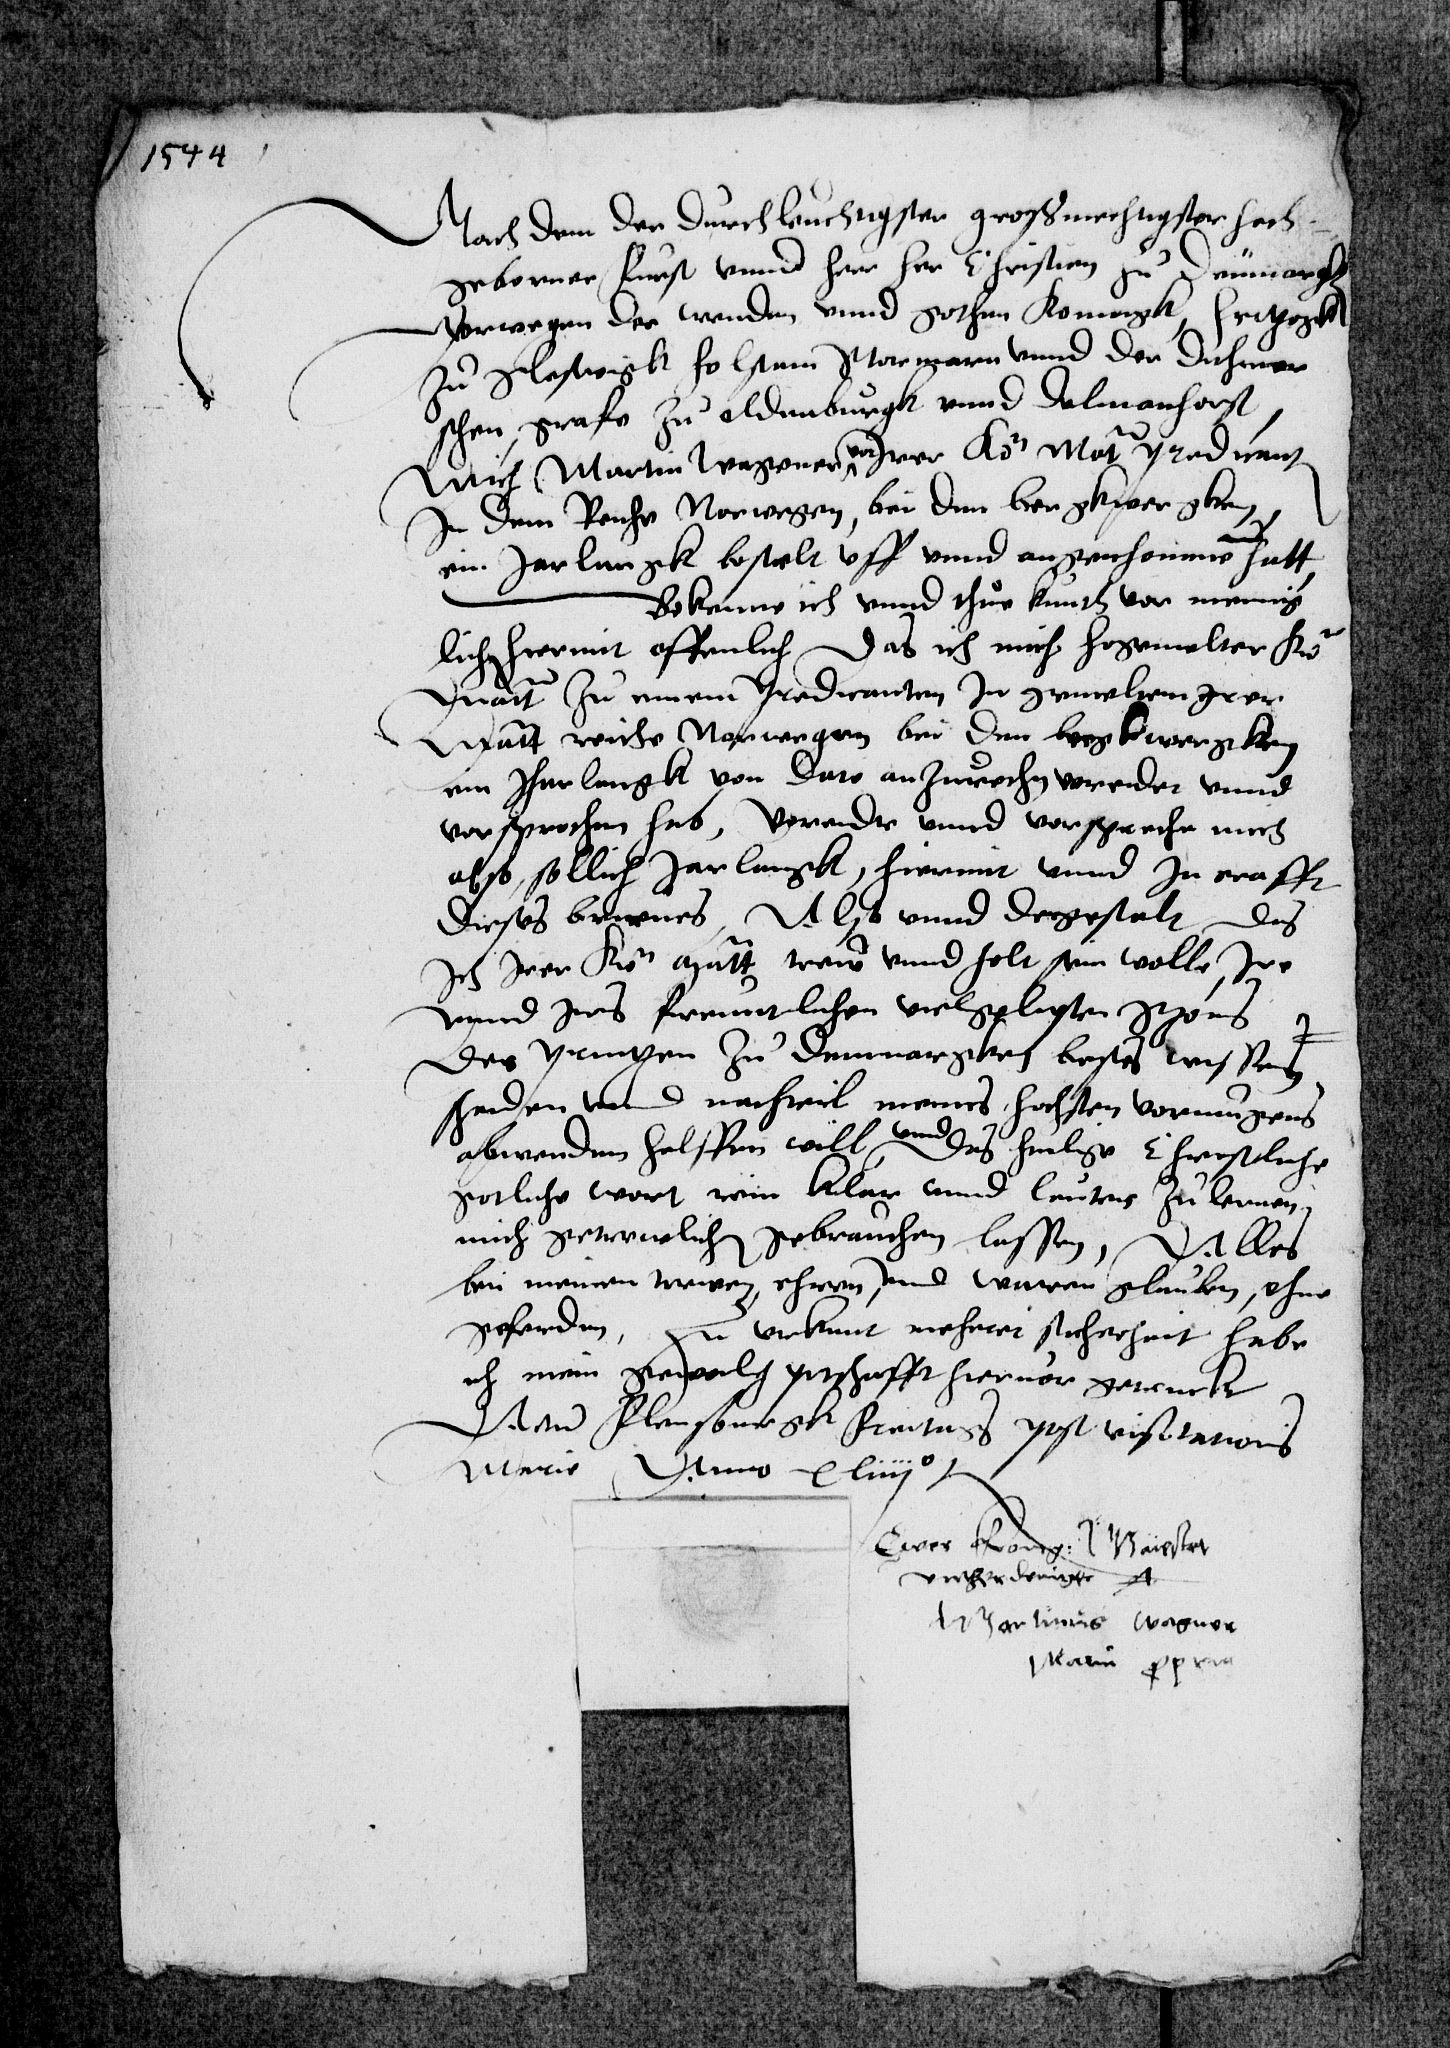 1544
Nach dem der Durchleuchtigster großmechtigster hoch-
geborner Furst vnnd herr her Christian zu Denmargk
Norwegen der wenden vnnd gothen Konnigk, hertzogk
zu Sleswigk holstain Stormarn vnnd der Dithmer
schen, grafe zu oldenburgk vnnd Delmanhorst,
Mich Martin Wagener vor Irer Kön Mat predicant
In dem Reiche Norwegen, bei den bergkwergken,
ein Jarlangk bestelt vff vnnd angenhomme hatt,
Bekenne ich vnnd thue kunth vor mennig
lich hiermit offenlich Das ich mich hogemelter Kön
Matt zu einem predicanten In gemeltem Irer
Matt reiche Norwegen bei den bergkwergken
ein Jharlangk von dato anzurechn voreidet vnnd
vorsprochen hab, Voreide vnnd vorspreche mich
also, sollich Jarlangk, hiermit vnnd In crafft
dieses brieues, Also vnnd dergestalt das
Ich Irer Kön Matt trew vnnd holt sein wolle, Ire
vnnd Irs freuntlichen vielgelipten Shons
Des printzen zu Denmargken bestes wissen
schaden vnnd nachteil meines hochsten vormugens
abwenden helffen will, vnd Das heilige Christliche
gotliche wort rein klar vnnd lauter zu lernen,
mich getrewlich gebrauchen lassen, Alles
bei meinen trewen, ehren, vnd waren glauben, ohne
geferden, Zu vrkunt mehrer sicherheit habe
ich mein gewonlig pitschafft hieruor gedruckt
Datum Flensburgk Freitags post visitationis
Marie Anno xliiij°
Ewer Konig: Maiestet
vntherdeniger
Martinus Wagner
Manu ppria